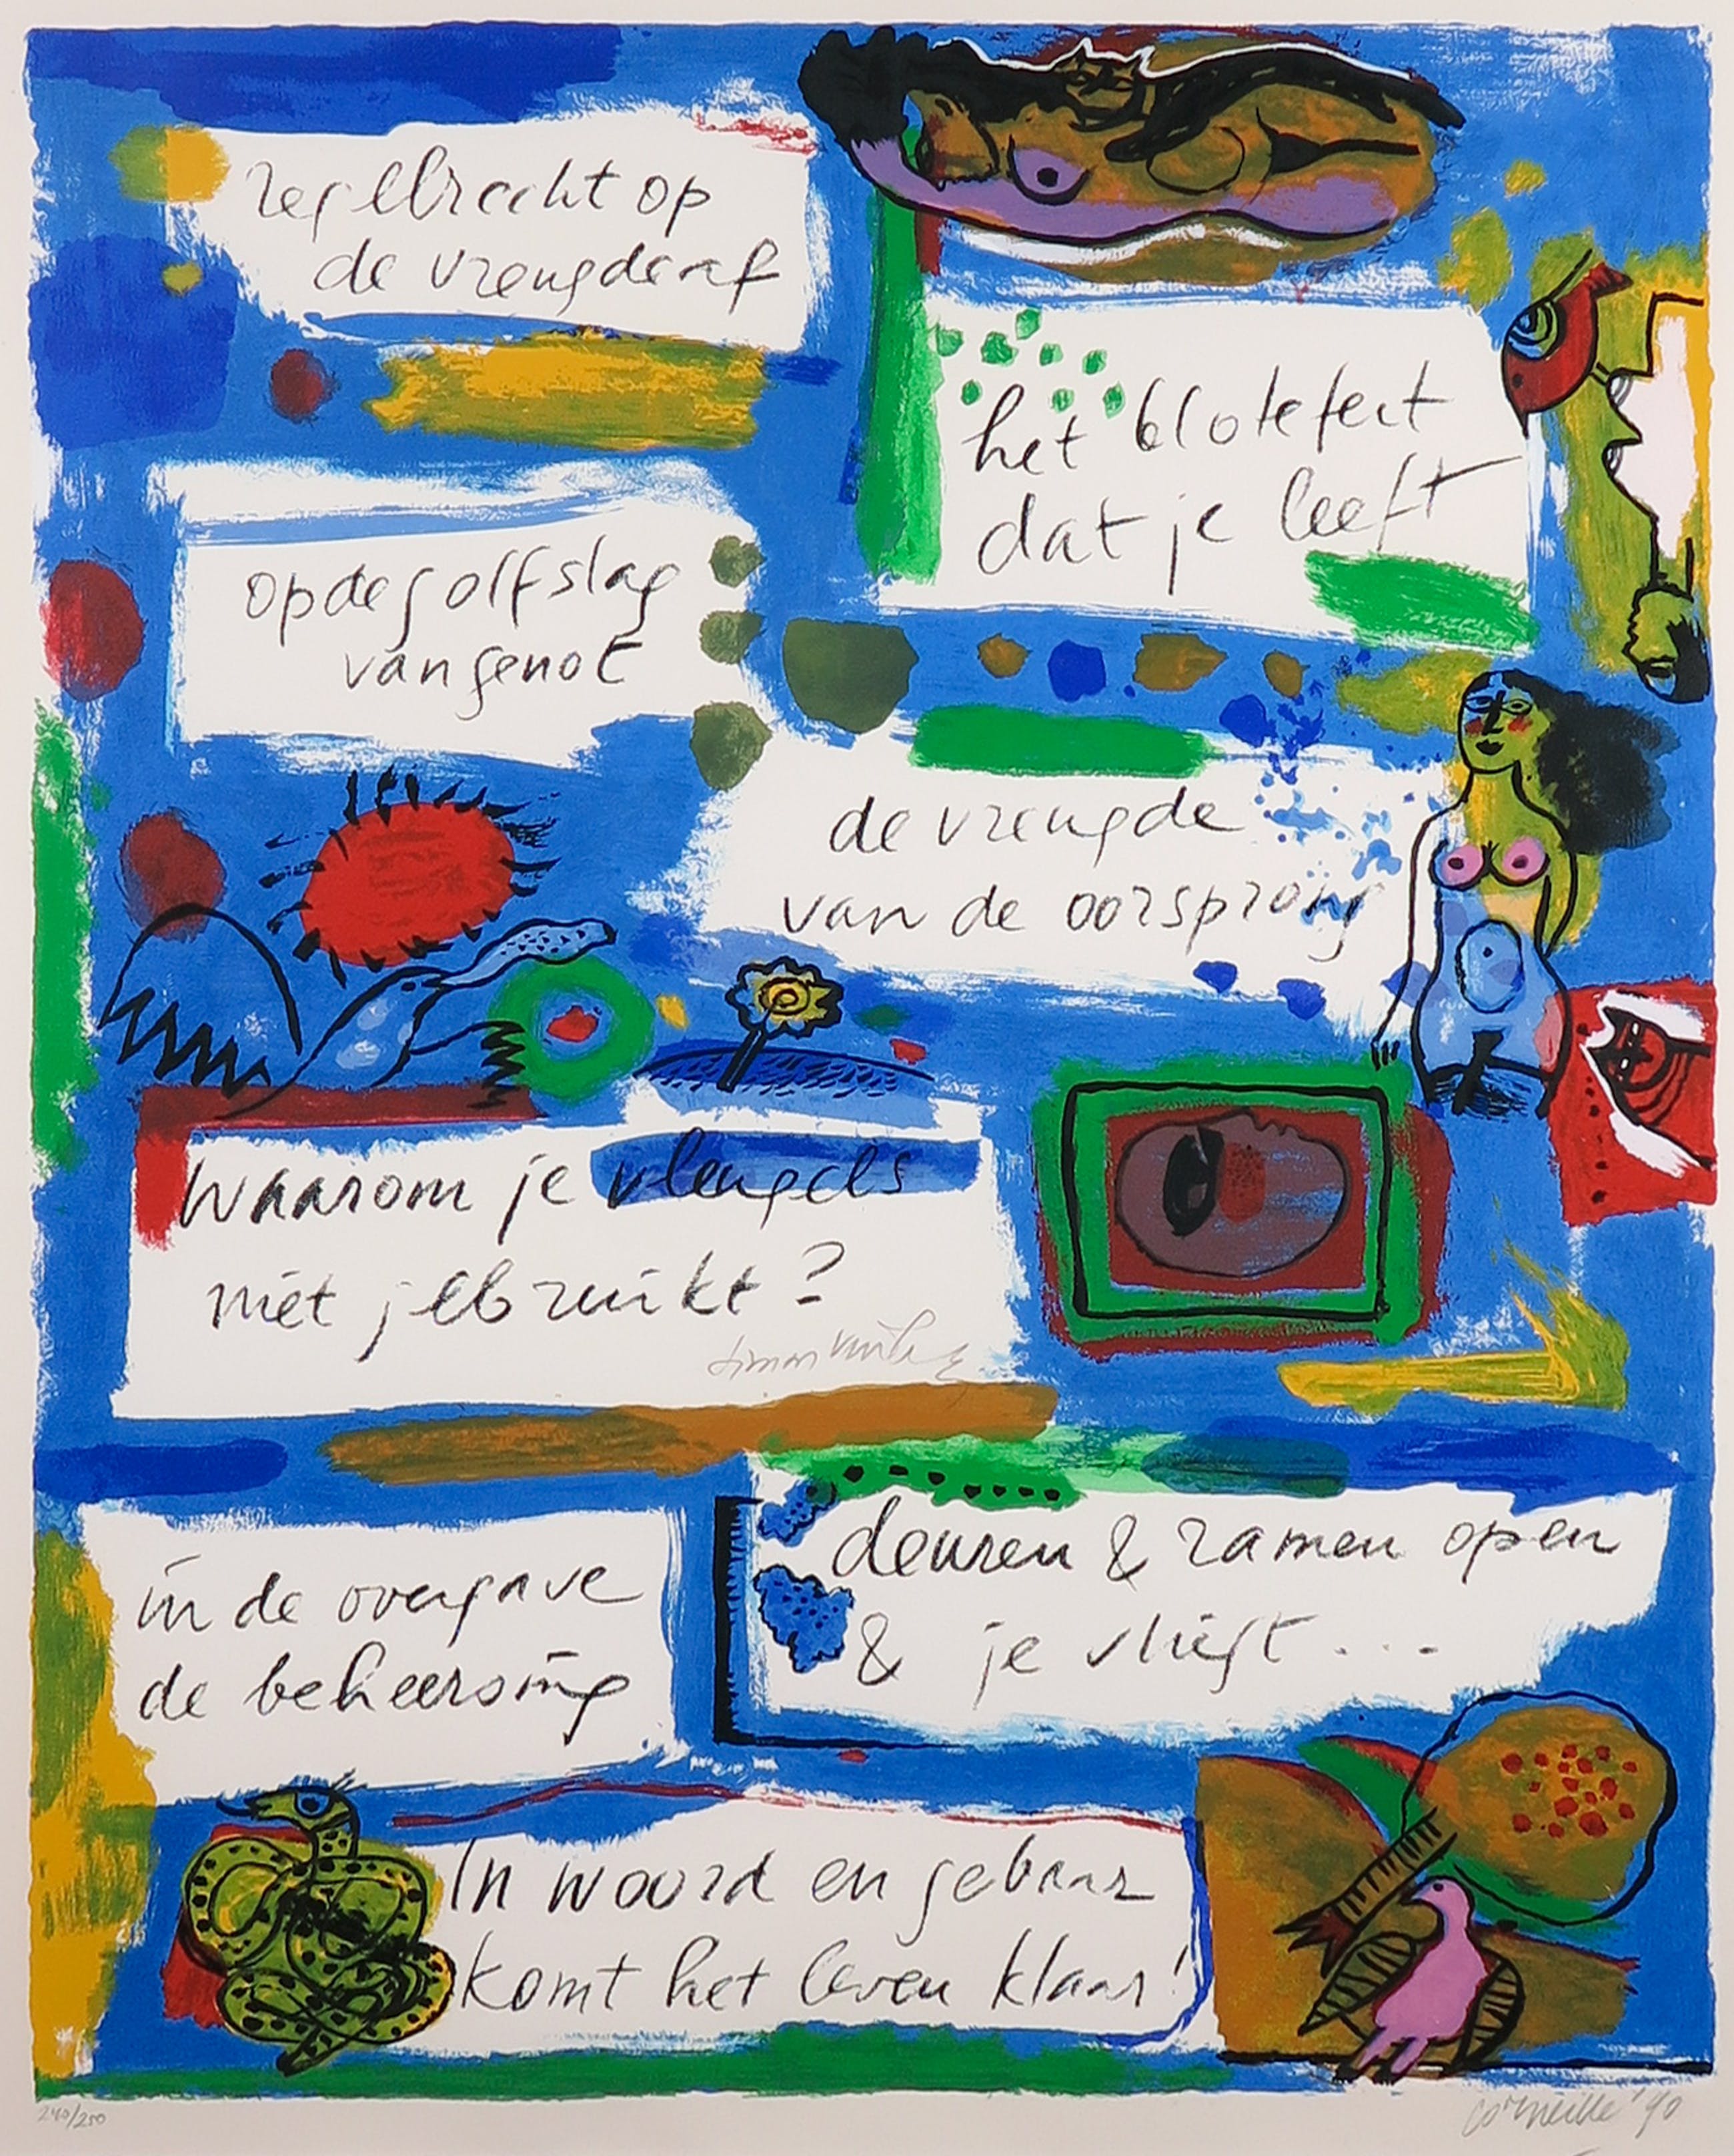 regelrecht op
de vreugde af
het blote feit
dat je leeft
op de golfslag
van genot
de vreugde
van de oorsprong
waarom je vleugels
niet gebruikt?
simon vinkenoog
in de overgave
de beheersing
deuren & ramen open
& je vliegt...
In woord en gebaar
komt het leven klaar!
240/250
Corneille '90